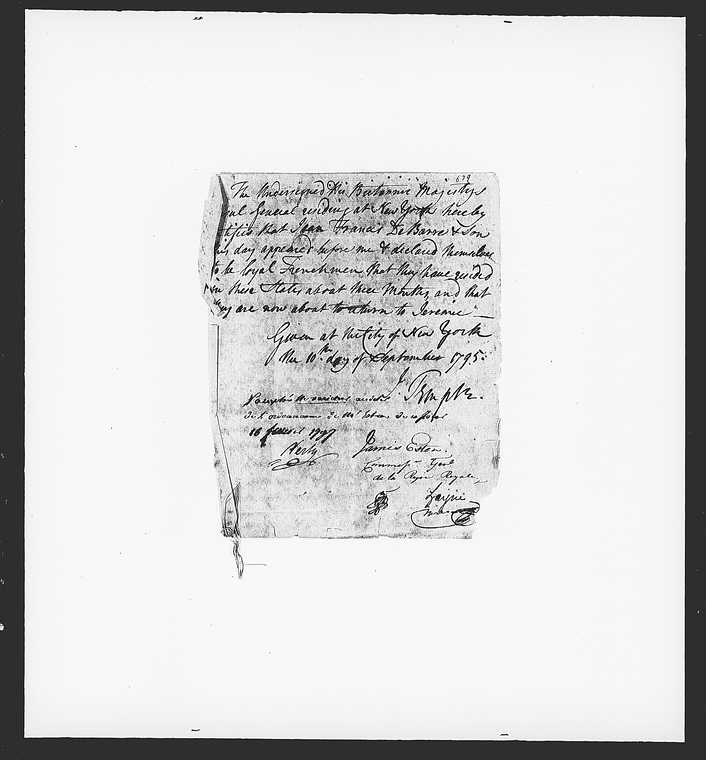 639
The Undersigned His Britannic Majestys
ul General residing at New York hereby
tifies that Jean Francis De Barre & Son
is day appeared before me & declared themselves
to be loyal Frenchmen, that they have resided
in these States about three Months, and that
they are now about to return to Jeremie
Given at the City of New York
the 10th day of September 1795.
J Temple.
de l'ordonnance de
16 1797
James Esten.
de la Regie Royale